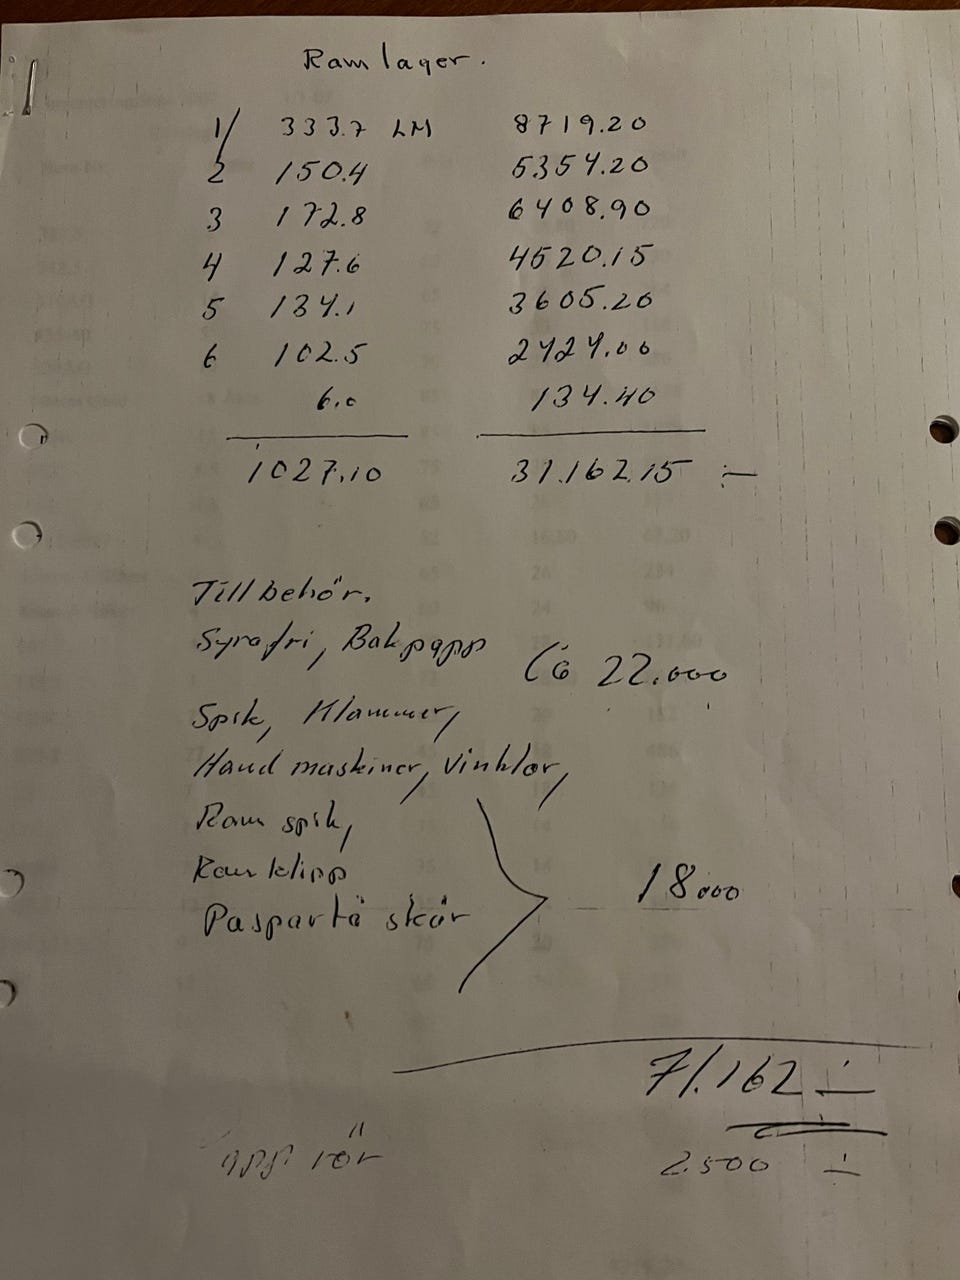 Ram lager.
1/ 333.7 LM 8719.20
2 150.4 5354.20
3 172.8 6408.90
4 127.6 4520.15
5 134.1 3605.20
6 102.5 2424.00
6.0 134.40
1027.10 31.162.15 :-
Tillbehör.
Syrafri, Bakpapp Ca 22.000
Spik, Klammer,
Hand maskiner, vinklar,
Ram spik,
Ram klipp
Paspartå skär 18000
71.162 :-
rör 2.500 :-